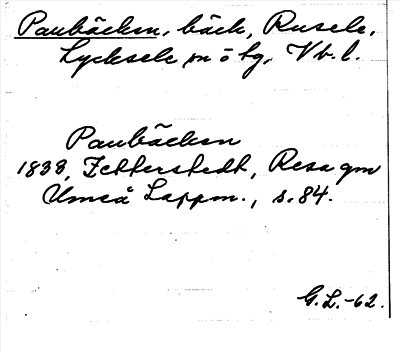 Paubäcken, bäck, Rusele,
Lycksele m o tg, Vb. l.
Paubäcken
1833, Zetterstedt, Resa gm
Umeå Lappm., s. 84.
G.L.-62.